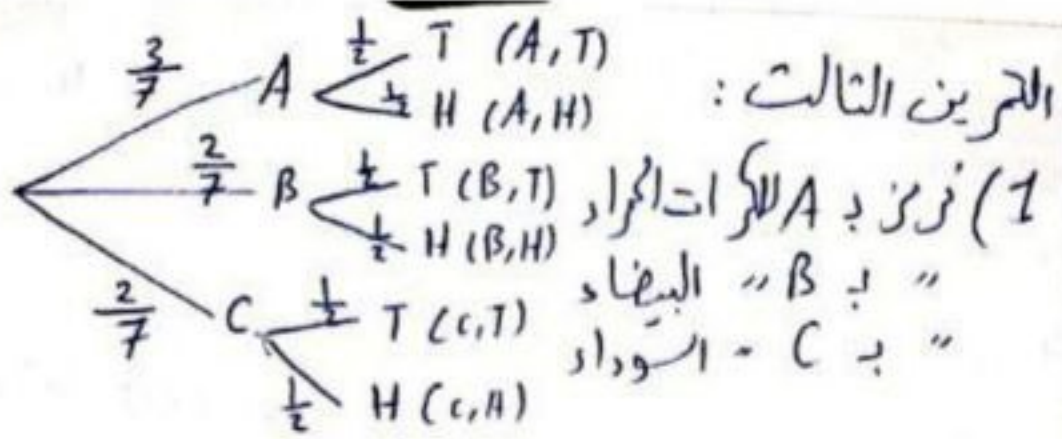 التمرين الثالث :
1) نرمز بـ A للكرات الحمراء
" بـ B " البيضاء
" بـ C " السوداء
3/7 A 1/2 T (A,T)
1/2 H (A,H)
2/7 B 1/2 T (B,T)
1/2 H (B,H)
2/7 C 1/2 T (C,T)
1/2 H (C,H)